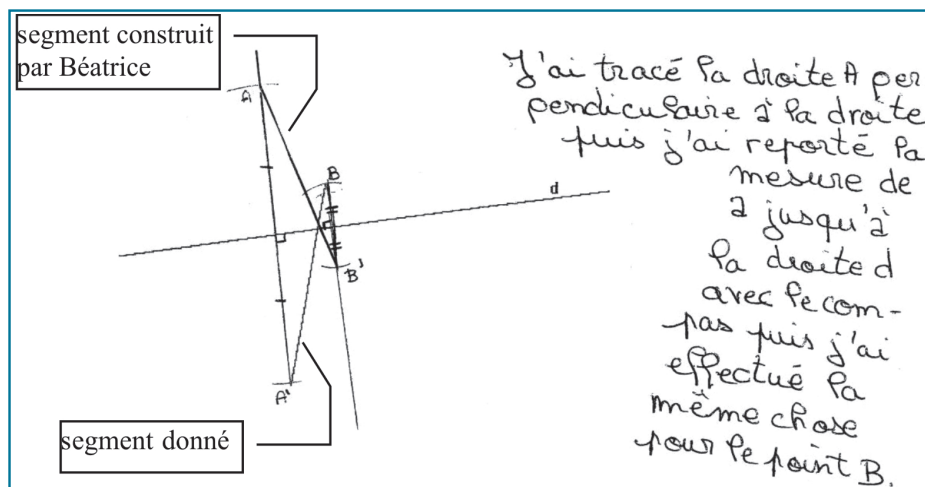 segment construit
par Béatrice
A
B
d
B'
A'
segment donné
J'ai tracé la droite A per
pendiculaire à la droite
puis j'ai reporté la
mesure de
a jusqu'à
la droite d
avec le com-
pas puis j'ai
effectué la
même chose
pour le point B.